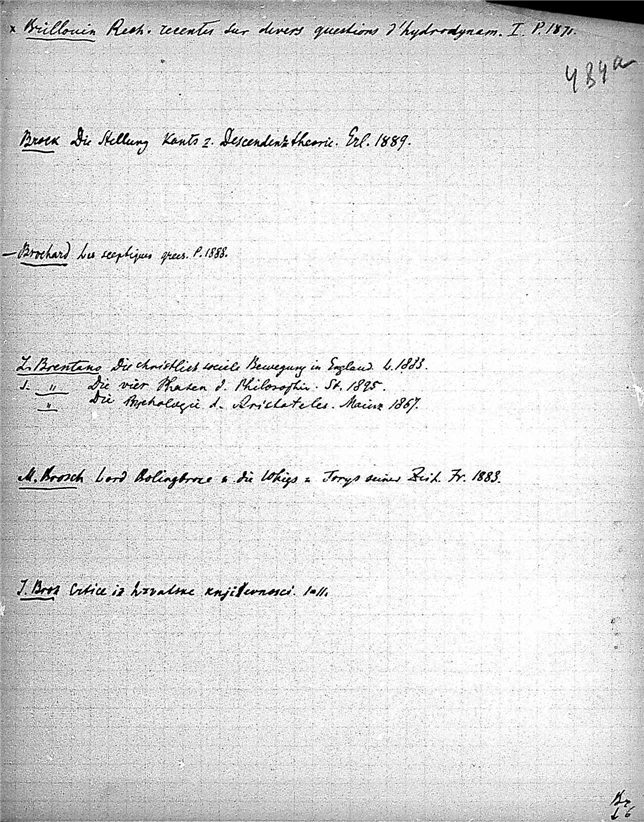 x Brillouin Rech. recentes sur divers questions d'hydrodynam. I. P. 1891.
484a
Brock Die Stellung Kants z. Descendenztheorie. Erl. 1889.
— Brochard Les sceptiques grecs. P. 1888.
L. Brentano Die christlich sociale Bewegung in England. L. 1883.
" Die vier Phasen d. Philosophie. St. 1895.
" Die Psychologie d. Aristoteles. Mainz 1867.
M. Brosch Lord Bolingbroke u. die Whigs u. Torys seiner Zeit. Fr. 1883.
I. Broz Crtice iz hrvatske književnosci. I-II.
Br